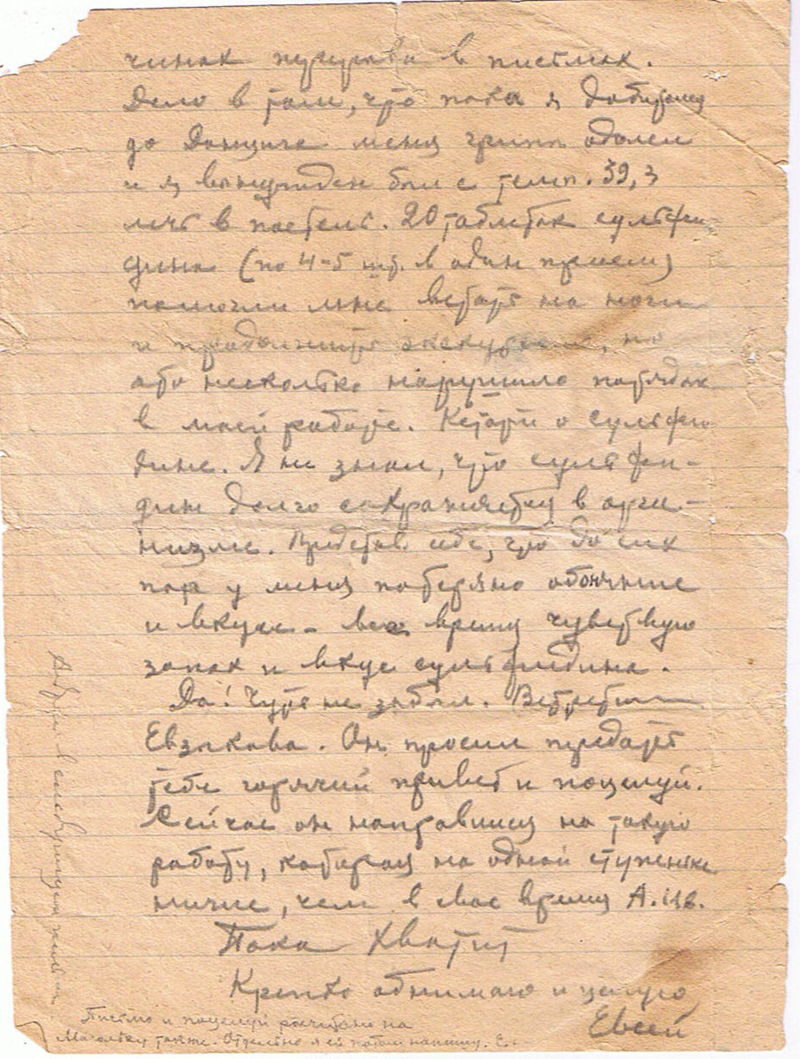 чинах перерыва в письмах.
Дело в том, что пока я добирался
до Данцига меня грипп одолел
и я вынужден был с темп. 39,3
лечь в постель. 20 таблеток сульфи-
дина (по 4-5 шт. в один прием)
помогли мне встать на ноги
и продолжить экскурсию, но
это несколько нарушило порядок
в моей работе. Кстати о сульфи
дине. Я не знал, что сульфи-
дин долго сохраняется в орга-
низме. Представь себе, что до сих
пор у меня потеряно обоняние
и вкус - все время чувствую
запах и вкус сульфидина.
Да! Чуть не забыл. Встретил
Евзикова. Он просил предать
тебе горячий привет и поцелуй.
Сейчас он направился на такую
работу, которая на одной ступеньке
ниже, чем в свое время А. Цв.
Пока хватит
Крепко обнимаю и целую
Евсей
Письмо и поцелуй рассчитаны на
также. Отдельно я ей потом напишу. Е.
в следующем